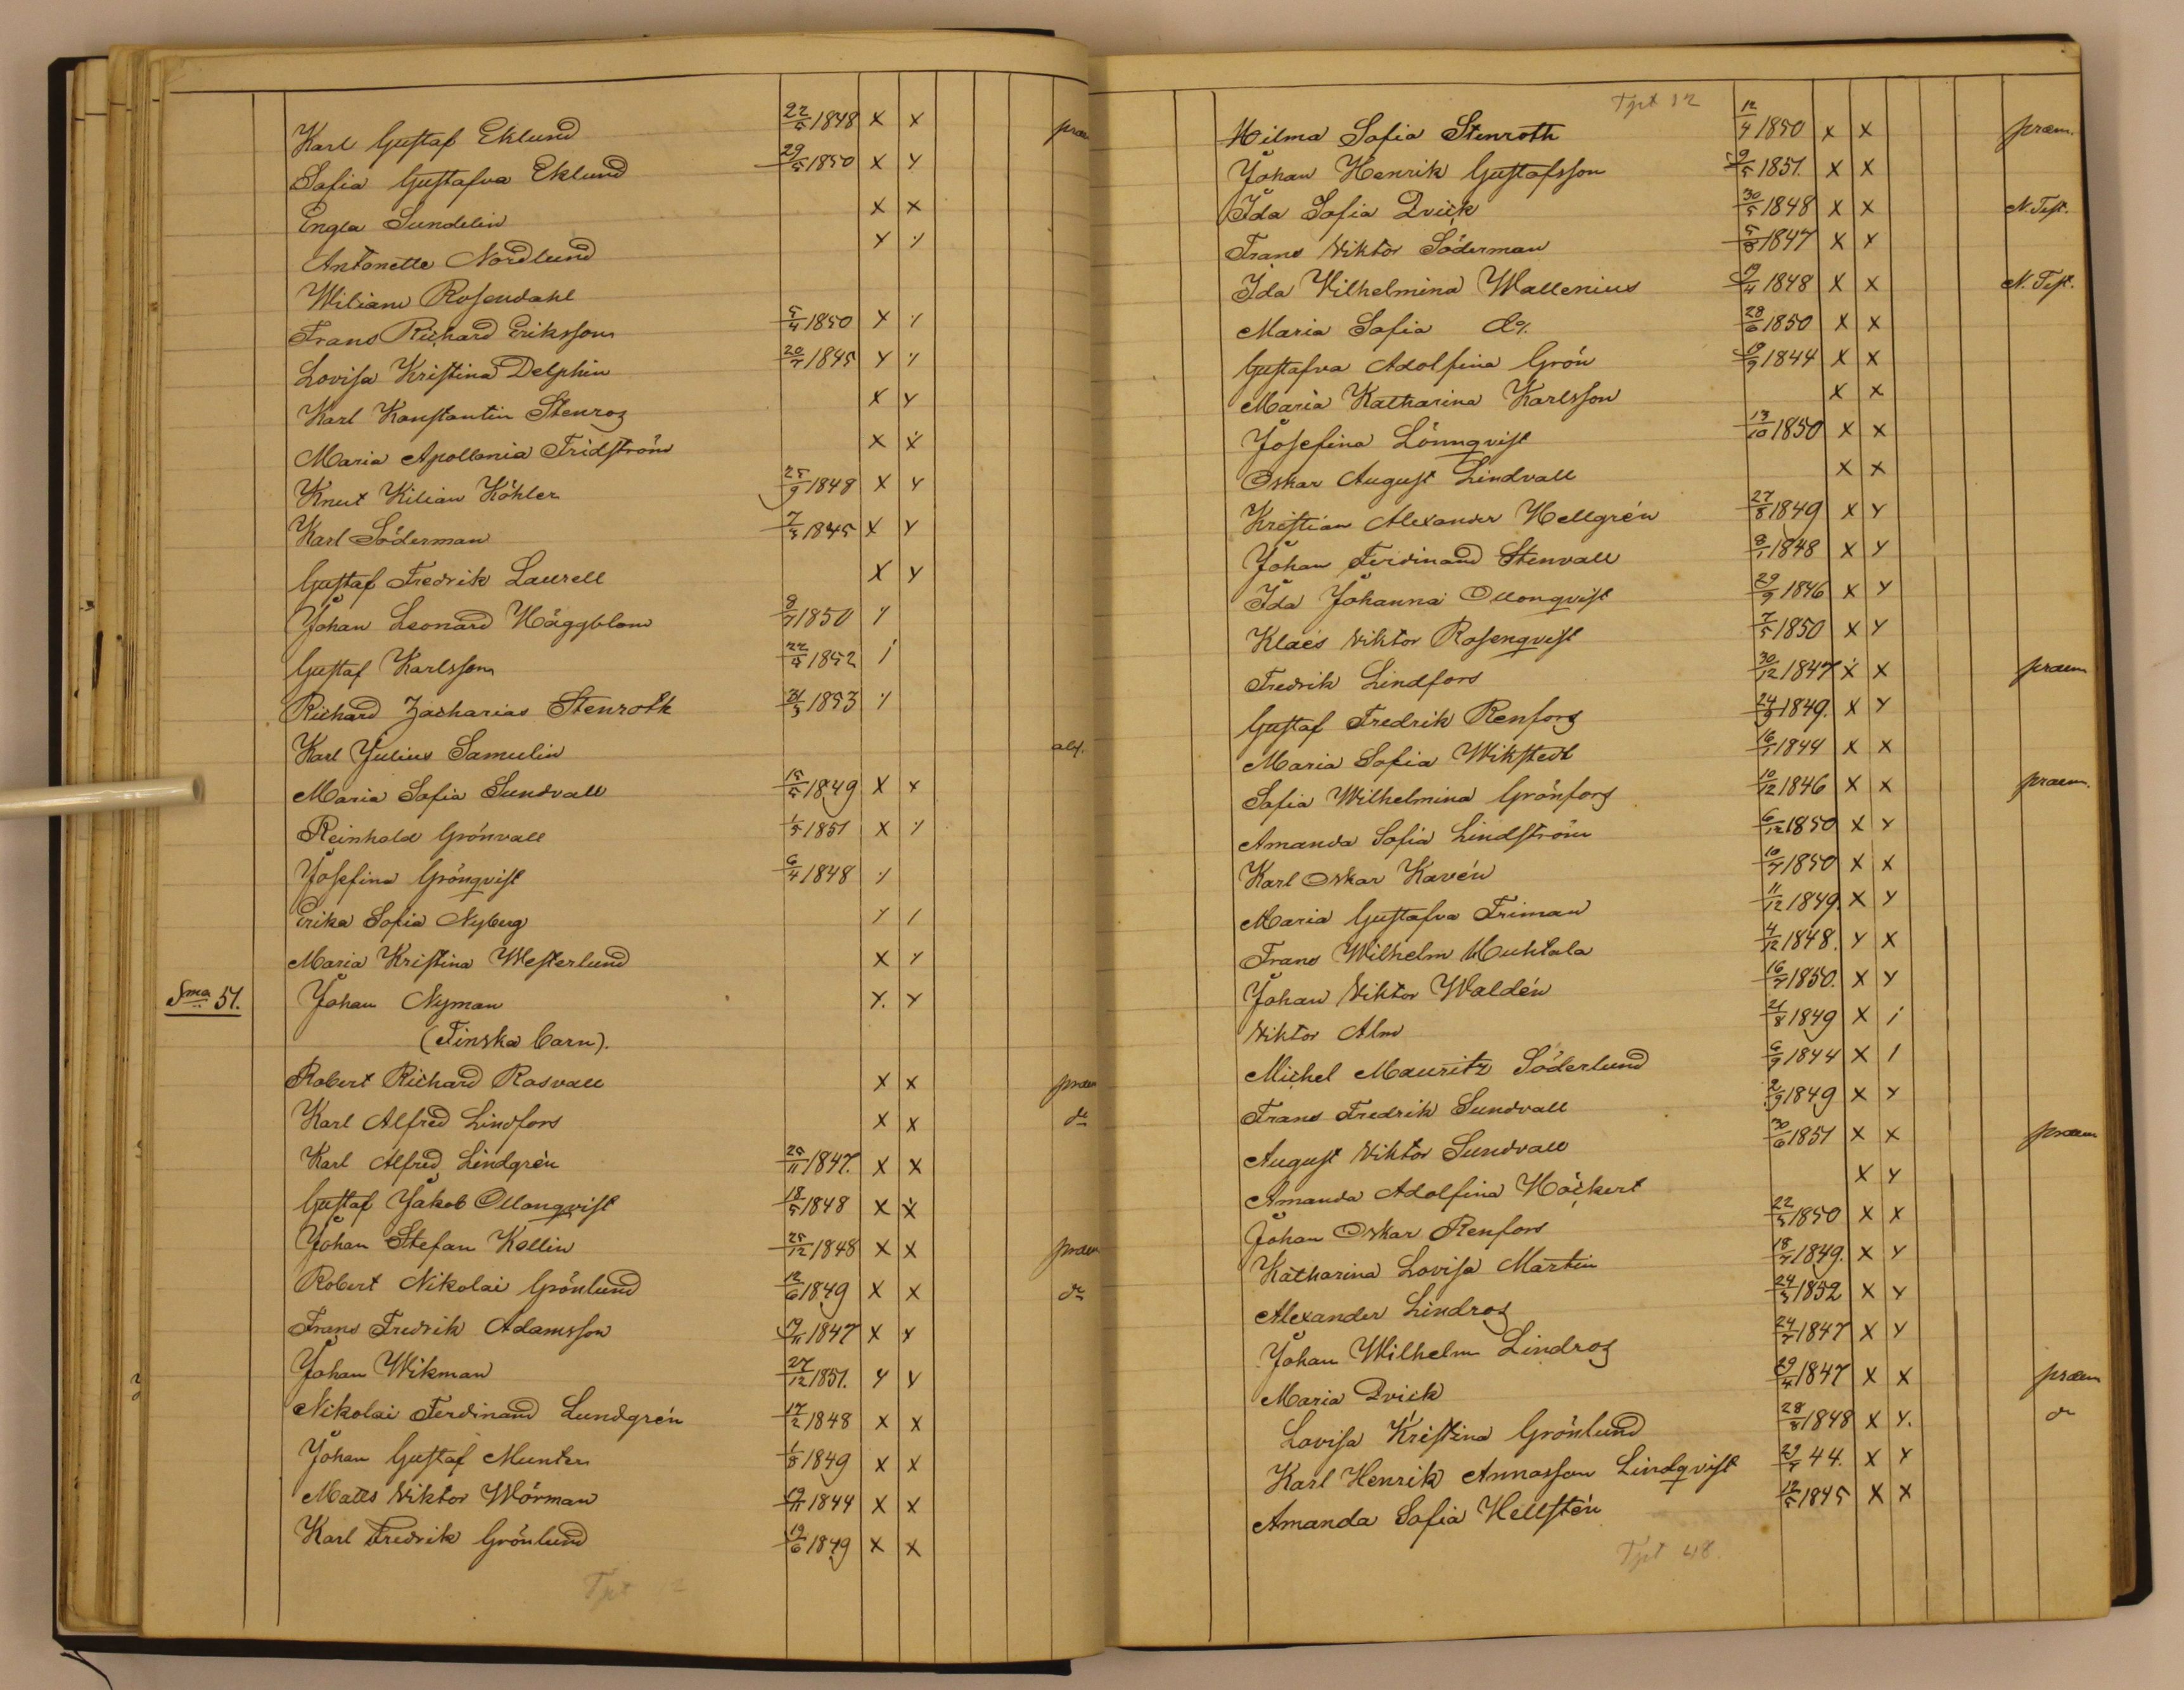 Karl Gustaf Eklund 22/5 1848 x x præm
Sofia Gustafva Eklund 29/5 1850 x y
Engla Sundelin x x
Antonette Nordlund y ⁒
Wiliam Rosendahl
Frans Richard Eriksson 5/4 1850 y ⁒
Lovisa Kristina Delphin 20/7 1845 y ⁒
Karl Konstantin Stenros x y
Maria Apollonia Fridström x x
Knut Kilian Köhler 25/9 1848 x y
Karl Söderman 7/5 1845 x y
Gustaf Fredrik Laurell x y
Johan Leonard Häggblom 8/7 1850 ⁒
Gustaf Karlsson 22/5 1852 i
Richard Zacharias Stenroth 31/3 1853 ⁒
Karl Julius Samulin
Maria Sofia Sundvall 15/5 1849 x x
Reinhold Grönvall 1/5 1851 x ⁒
Josefina Grönqvist 6/4 1848 ⁒
Erika Sofia Nyberg y /
Maria Kristina Westerlund x y
Sma 51. Johan Nyman y. y
(Finska barn).
Robert Richard Rosvall x x præm
Karl Alfred Lindfors x x do
Karl Alfred Lindgrén 25/11 1847. x x
Gustaf Jakob Ollonqvist 18/5 1848 x x
Johan Stefan Kollin 25/12 1848 x x præm
Robert Nikolai Grönlund 12/6 1849 x x do
Frans Fredrik Adamsson 19/11 1847 x y
Johan Wikman 27/12 1851. y y
Nikolai Ferdinand Lundgrén 17/2 1848 x x
Johan Gustaf Munter 1/8 1849 x x
Matts Viktor Wörman 19/11 1844 x x
Karl Fredrik Grönlund 19/6 1849 x x
Tpt 12
Tpt 12
Hilma Sofia Stenroth 12/4 1850 x x præm.
Johan Henrik Gustafsson 9/5 1851. x x
Ida Sofia Qvick 30/5 1848 x x N. Test.
Frans Viktor Söderman 5/8 1847 x y
Ida Vilhelmina Wallenius 9/11 1848 x x N. Test.
Maria Sofia do. 28/6 1850 x x
Gustafva Adolfina Grön 19/9 1844 x x
Maria Katharina Karlsson x x
Josefina Lönnqvist 13/10 1850 x x
Oskar August Lindvall x x
Kristian Alexander Hellgrén 27/8 1849 x y
Johan Ferdinand Stenvall 8/1 1848 x y
Ida Johanna Ollonqvist 29/9 1846 x y
Klaes Viktor Rosenqvist 7/5 1850 x y
Fredrik Lindfors 30/12 1847 x x præm
Gustaf Fredrik Renfors 24/9 1849. x y
Maria Sofia Wikstedt 16/1 1844 x x
Sofia Wilhelmina Grönfors 10/12 1846 x x præm.
Amanda Sofia Lindström 6/12 1850 x y
Karl Oskar Kavén 10/7 1850 x x
Maria Gustafva Friman 11/12 1849. x y
Frans Wilhelm Huhtala 4/12 1848. y x
Johan Viktor Waldén 16/7 1850. x y
Viktor Alm 21/8 1849 x i
Michel Mauritz Söderlund 6/9 1844 x /
Frans Fredrik Sundvall 2/9 1849 x y
August Viktor Sundvall 30/6 1851 x x præm
Amanda Adolfina Höckert x y
Johan Oskar Renfors 22/5 1850 x x
Katharina Lovisa Martin 18/7 1849. x y
Alexander Lindros 24/3 1852 x y
Johan Wilhelm Lindros 24/7 1847 x y
Maria Qvick 29/4 1847 x x præm
Lovisa Kristina Grönlund 28/8 1848 x y. do
Karl Henrik Annasson Lindqvist 29/7 44. x y
Amanda Sofia Hellstén 12/5 1845 x x
Tpt 48.